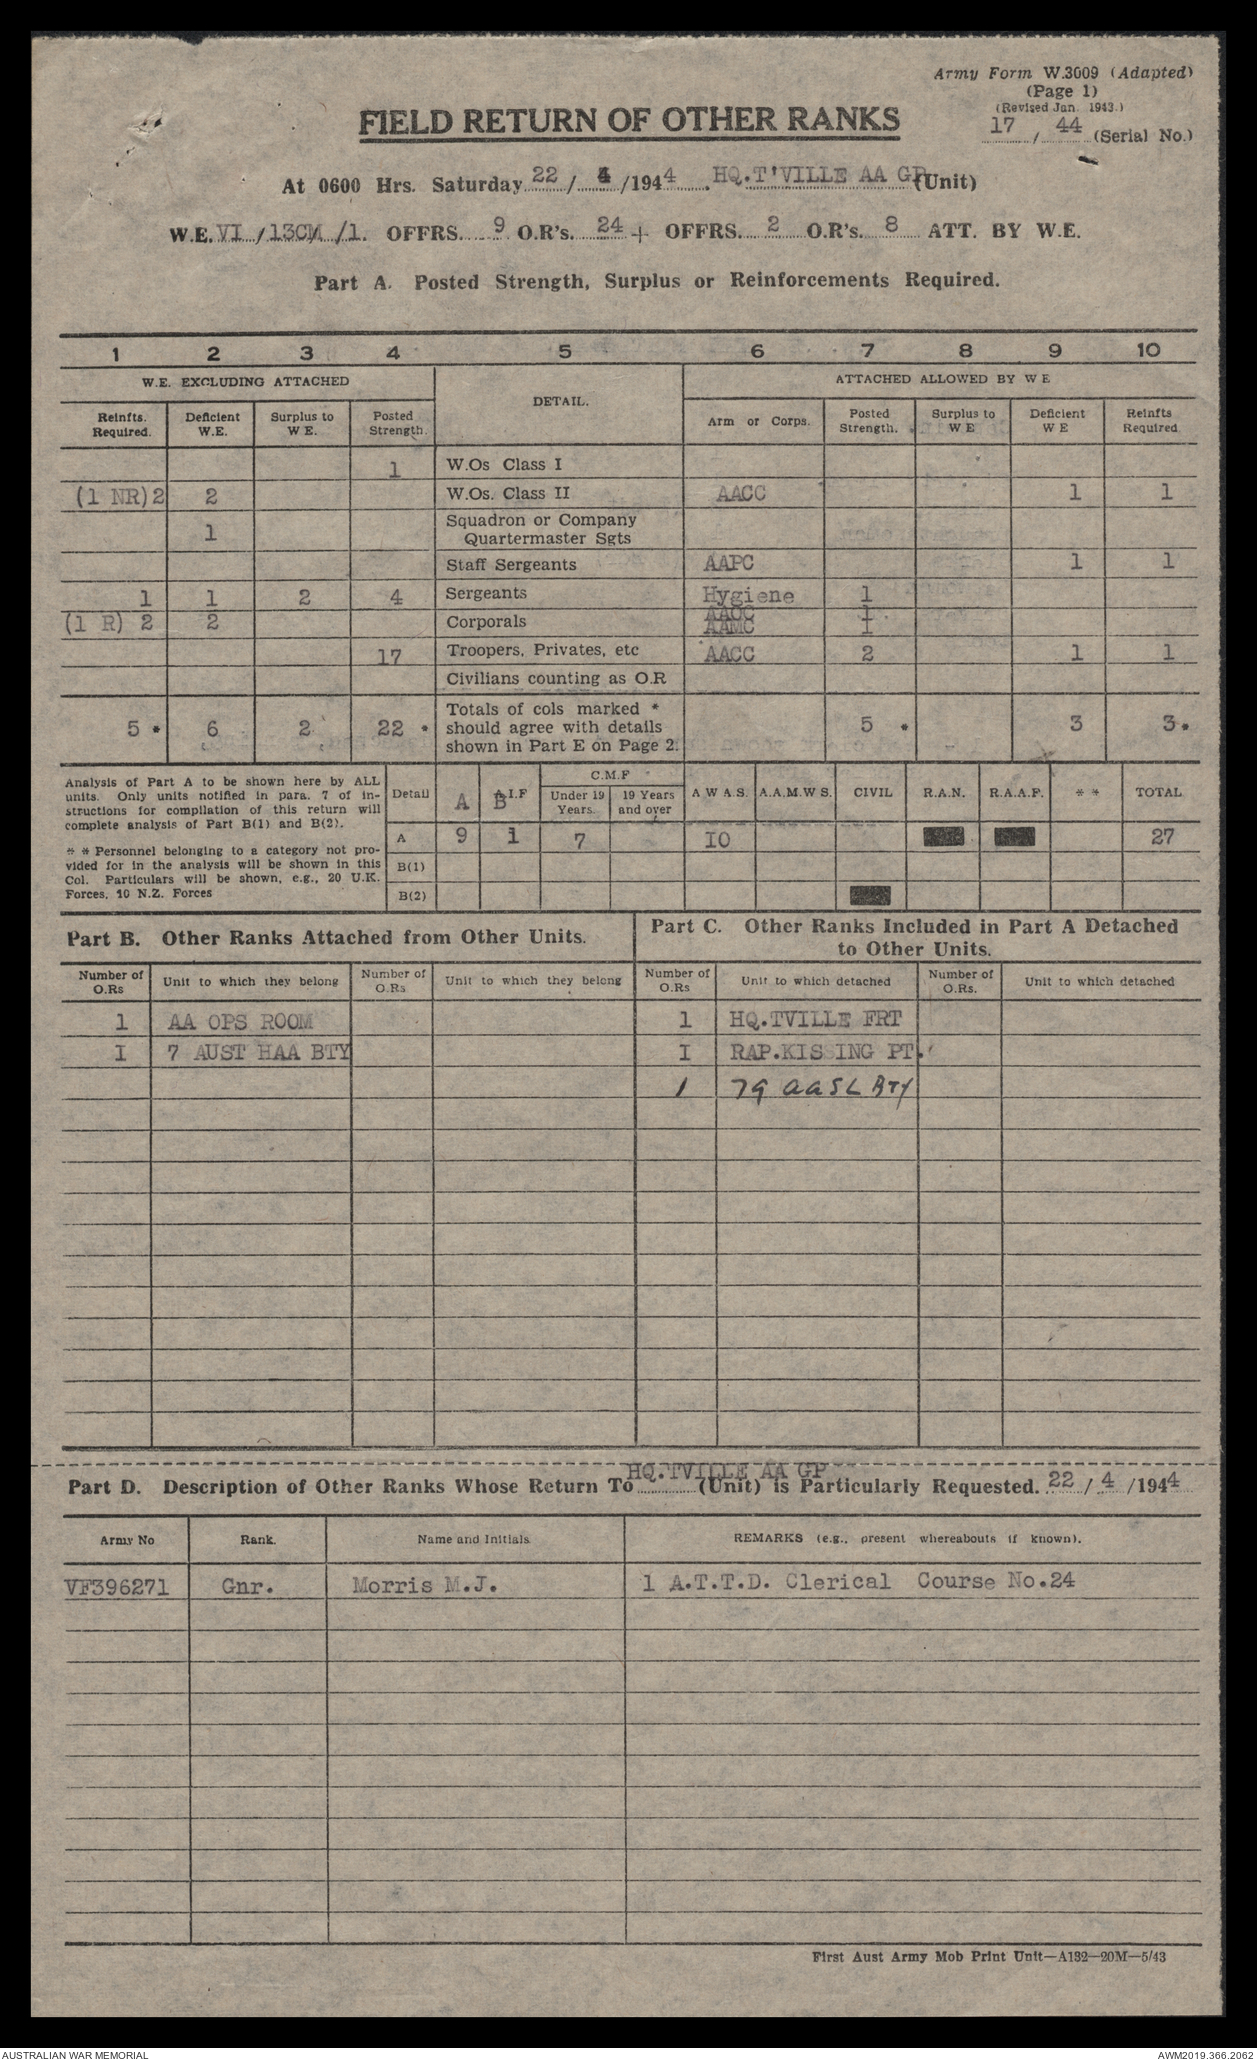 Army Form W.3009 (Adapted)
(Page 1)
(Revised Jan. 1943.)
17 / 44 (Serial No.)
FIELD RETURN OF OTHER RANKS
At 0600 Hrs. Saturday 22 / 4 /1944 HQ.T'VILLE AA GP (Unit)
W.E. VI / 13CM /1. OFFRS. 9 O.R's. 24 + OFFRS. 2 O.R's. 8 ATT. BY W.E.
Part A. Posted Strength, Surplus or Reinforcements Required.
1 2 3 4 5 6 7 8 9 10
W.E. EXCLUDING ATTACHED DETAIL. ATTACHED ALLOWED BY W E
Reinfts. Required. Deficient W.E. Surplus to W E. Posted Strength. Arm or Corps. Posted Strength. Surplus to W E Deficient W E Reinfts Required
1 W.Os Class I
(1 NR) 2 2 W.Os. Class II AACC 1 1
1 Squadron or Company Quartermaster Sgts
Staff Sergeants AAPC 1 1
1 1 2 4 Sergeants Hygiene 1
(1 R) 2 2 Corporals AAOC 1
AAMC 1
17 Troopers, Privates, etc AACC 2 1 1
Civilians counting as O.R
5 * 6 2 22 * Totals of cols marked * should agree with details shown in Part E on Page 2. 5 * 3 3 *
Analysis of Part A to be shown here by ALL
units. Only units notified in para. 7 of in-
structions for compilation of this return will
complete analysis of Part B(1) and B(2).
* * Personnel belonging to a category not pro-
vided for in the analysis will be shown in this
Col. Particulars will be shown, e.g., 20 U.K.
Forces, 10 N.Z. Forces
Detail A B A.I.F C.M.F Under 19 Years. 19 Years and over A W A S. A.A.M.W S. CIVIL R.A.N. R.A.A.F. * * TOTAL
A 9 1 7 10 27
B(1)
B(2)
Part B. Other Ranks Attached from Other Units.
Part C. Other Ranks Included in Part A Detached
to Other Units.
Number of O.Rs Unit to which they belong Number of O.Rs Unit to which they belong Number of O.Rs Unit to which detached Number of O.Rs. Unit to which detached
1 AA OPS ROOM 1 HQ.TVILLE FRT
I 7 AUST HAA BTY I RAP.KISSING PT.
1 79 AASL BTY
Part D. Description of Other Ranks Whose Return To HQ.TVILLE AA GP (Unit) is Particularly Requested. 22 / 4 /1944
Army No Rank. Name and Initials REMARKS (e.g., present whereabouts if known).
VF396271 Gnr. Morris M.J. 1 A.T.T.D. Clerical Course No.24
First Aust Army Mob Print Unit—A132—20M—5/43
AUSTRALIAN WAR MEMORIAL AWM2019.366.2062